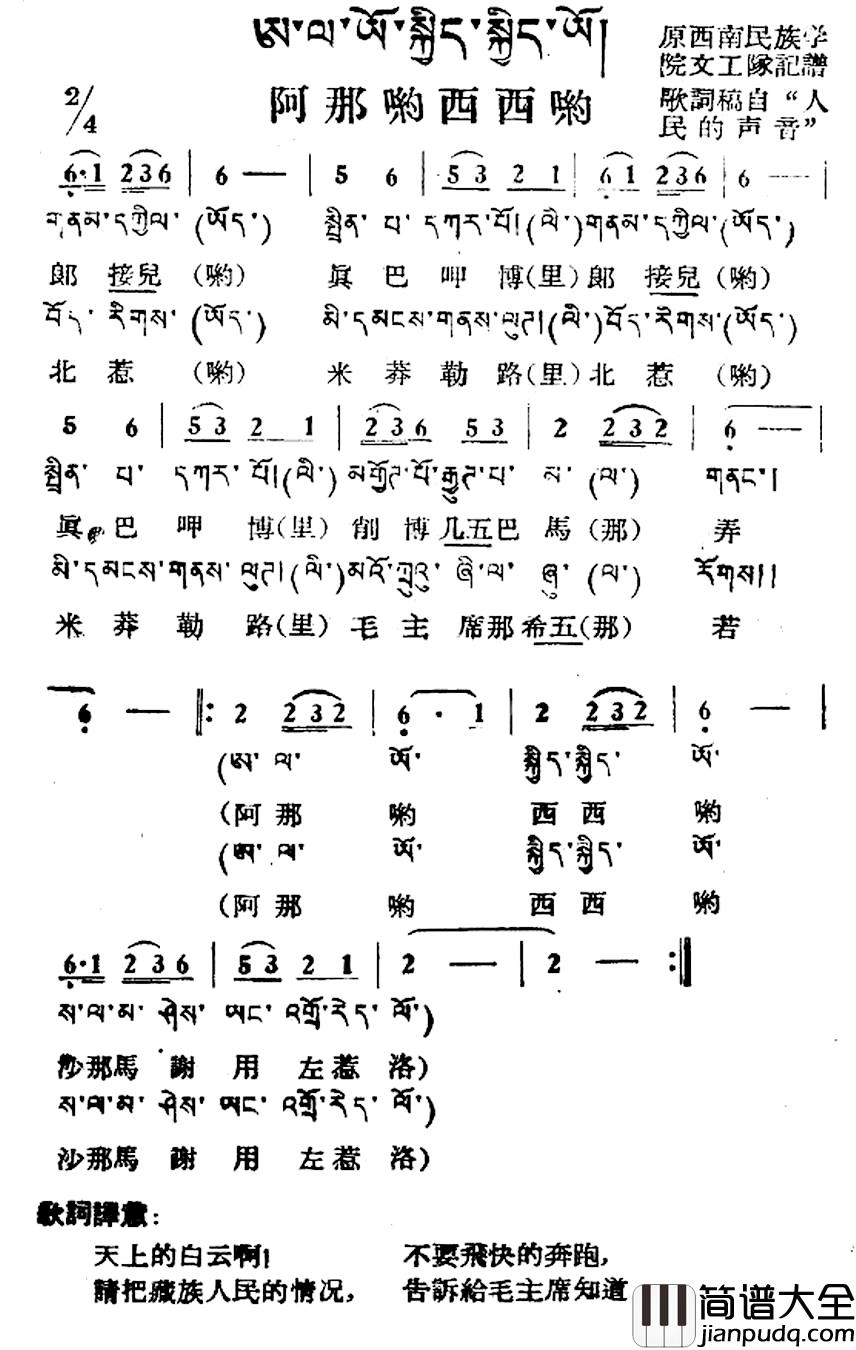 ཨ་ལ་ཡོ་སྐྱིད་སྐྱིད་ཡོ།
阿那喲西西喲
原西南民族学
院文工隊記譜
歌詞稿自“人
民的声音”
2/4
6·1 236 | 6 — | 5 6 | 53 2 1 | 61 236 | 6 — |
གནམ་དཀྱིལ་ (ཡོད་) སྤྲིན་ པ་ དཀར་པོ། (ལེ་) གནམ་དཀྱིལ་ (ཡོད་)
郎 接兒 (喲) 眞 巴 呷 博(里) 郎 接兒 (喲)
བོད་ རིགས་ (ཡོད་) མི་དམངས་གནས་ལུཊ། (ལེ་) བོད་ རིགས་ (ཡོད་)
北 惹 (喲) 米 莽 勒 路(里) 北 惹 (喲)
5 6 | 53 2 1 | 236 53 | 2 232 | 6 — |
སྤྲིན་ པ་ དཀར་ པོ། (ལེ་) མགྱོཊ་པོ་རྒྱུཊ་པ་ མ་ (ལ་) གནང་།
眞 巴 呷 博(里) 削 博 几五巴 馬 (那) 弄
མི་དམངས་གནས་ ལུཊ། (ལེ་) མའོ་ཀྲུའུ་ ཞི་ལ་ ཞུ་ (ལ་) རོགས།།
米 莽 勒 路(里) 毛 主 席那 希五(那) 若
6 — |: 2 232 | 6 · 1 | 2 232 | 6 — |
(ཨ་ ལ་ ཡོ་ སྐྱིད་སྐྱིད་ ཡོ་
(阿 那 喲 西 西 喲
(ཨ་ ལ་ ཡོ་ སྐྱིད་སྐྱིད་ ཡོ་
(阿 那 喲 西 西 喲
6·1 236 | 53 2 1 | 2 — | 2 — :|
ས་ལ་མ་ ཤེས་ ཨང་ འགྲོ་རེད་ ལོ་)
沙那馬 謝 用 左惹 洛)
ས་ལ་མ་ ཤེས་ ཨང་ འགྲོ་རེད་ ལོ་)
沙那馬 謝 用 左惹 洛)
歌詞譯意:
天上的白云啊! 不要飛快的奔跑,
請把藏族人民的情况, 告訴給毛主席知道
简谱大全
jianpudq.com